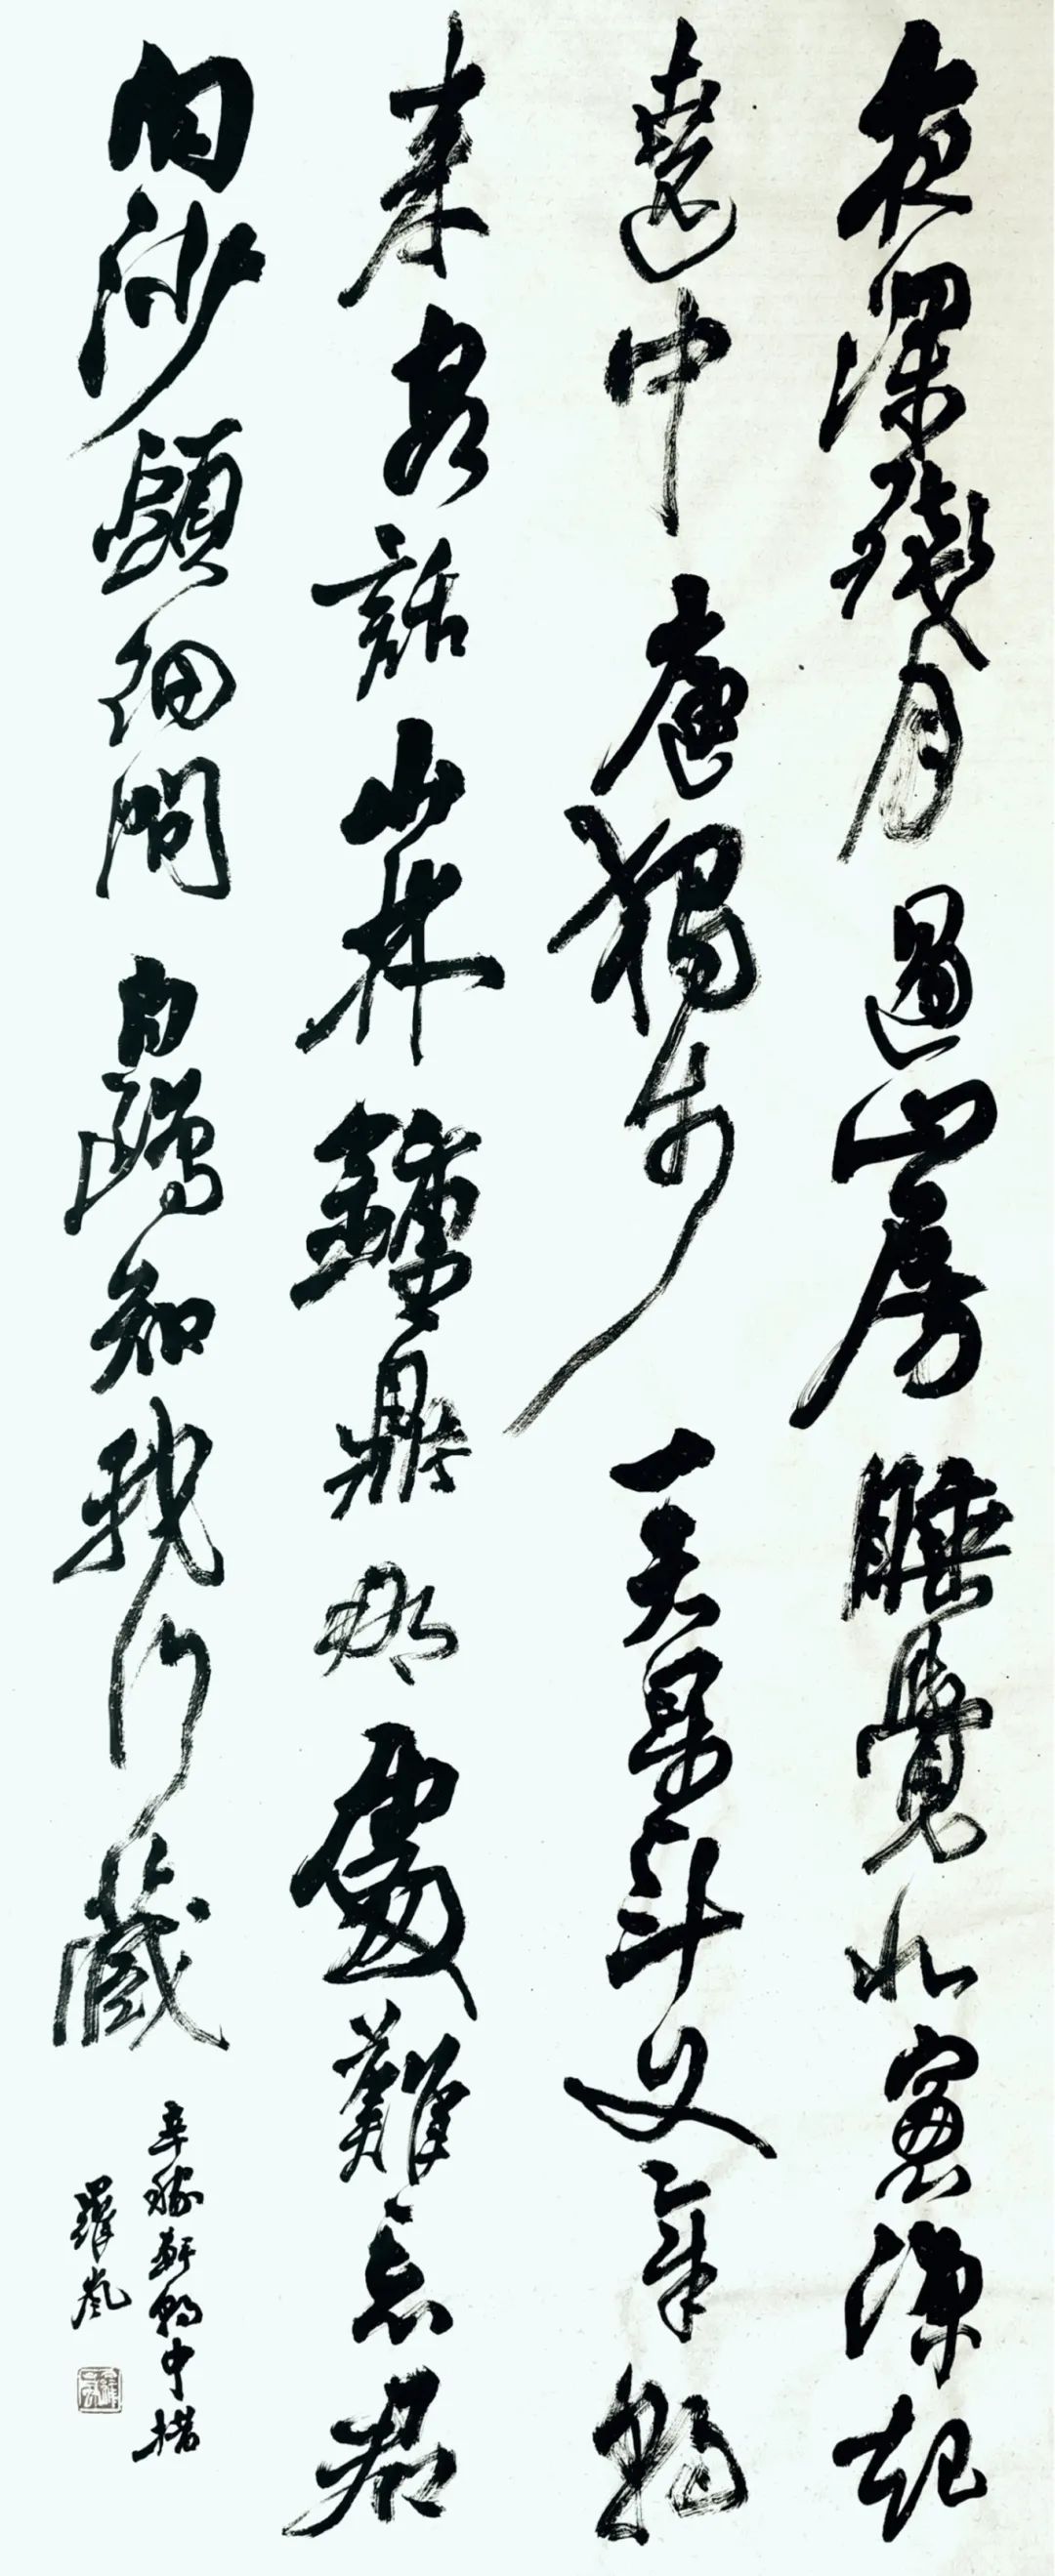 夜深殘月過山房睡覺北窗涼起
遶中庭獨步一天星斗文章朝
來客話山林鐘鼎那處難忘君
向沙頭細問白鷗知我行藏
辛稼軒朝中措
羅嵐